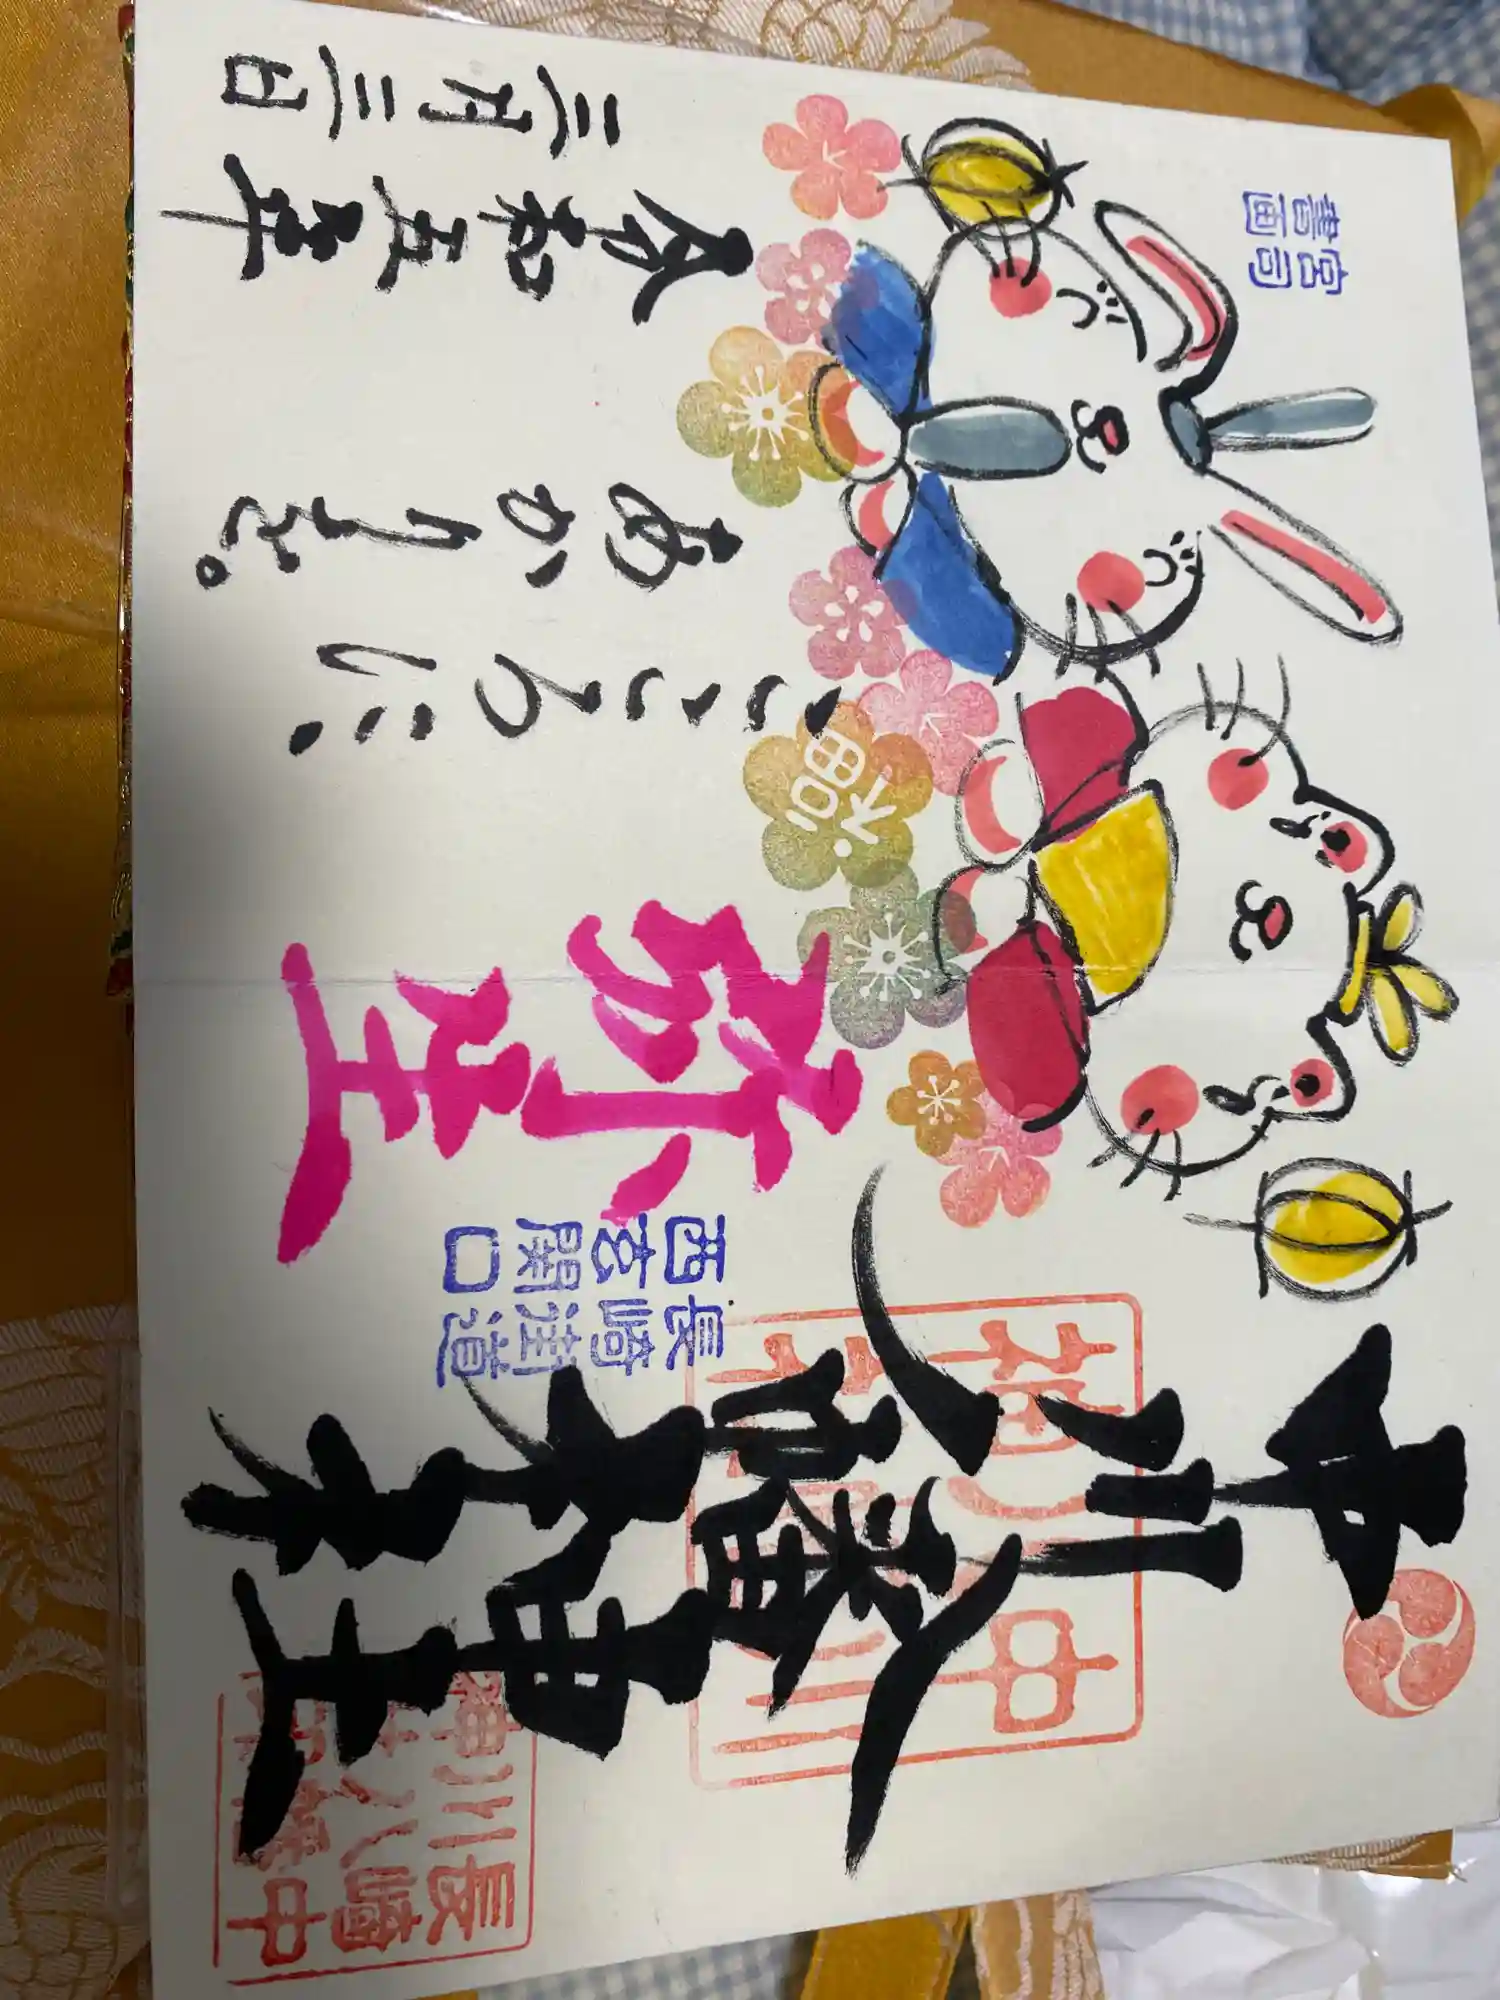 中川八幡神社
中川
八幡
神社
長崎中
川八幡
神社印
長崎街道
西玄関口
弥生
福
こころに、
あかりを。
令和五年
三月三日
宮司
書画